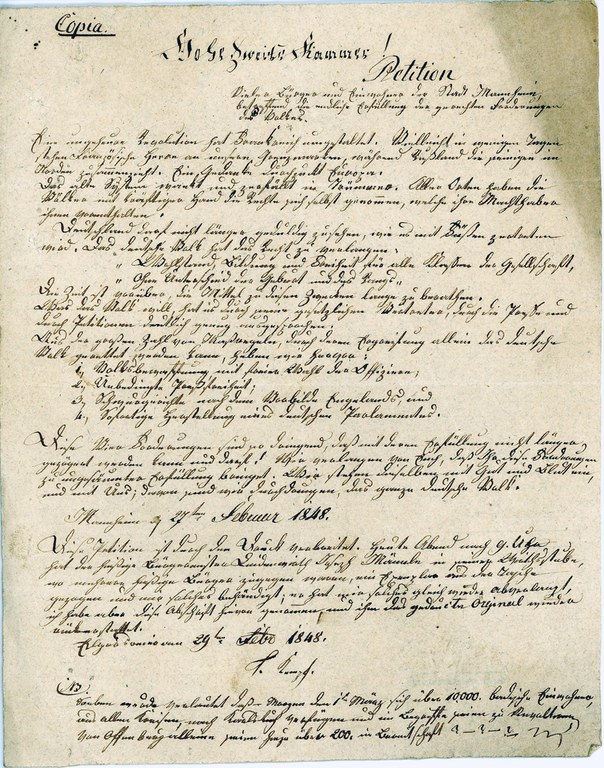 Copia.
Hohe Zweite Kammer!
Petition
Vieler Bürger und Einwohner der Stadt Mannheim,
betreffend die endliche Erfüllung der gerechten Forderungen
des Volkes.
Eine ungeheure Revolution hat Frankreich umgestaltet. Vielleicht in wenigen Tagen
stehen französische Heere an unseren Grenzmarken, während Rußland die seinigen im
Norden zusammenzieht. Ein Gedanke durchzuckt Europa.
Das alte System wankt und zerfällt in Trümmer. Aller Orten haben die
Völker mit kräftiger Hand die Rechte sich selbst genomen, welche ihre Machthaber
ihnen vorenthalten.
Deutschland darf nicht länger geduldig zusehen, wie es mit Füßen getreten
wird. Das deutsche Volk hat das Recht zu verlangen:
„ Wohlstand Bildung und Freiheit für alle Klassen der Gesellschaft,
„ Ohne Unterschied der Geburt und des Standes„
Die Zeit ist vorüber, die Mittel zu diesen Zwecken lange zu berathen.
Was das Volk will hat es durch seine gesetzlichen Vertreter, durch die Presse und
durch Petitionen deutlich genug ausgesprochen.
Aus der großen Zahl von Maßregeln, durch deren Ergreifung allein das deutsche
Volk gerettet werden kann, heben wir hervor:
1, Volksbewaffnung mit freier Wahl der Offiziere;
2, Unbedingte Preßfreiheit;
3, Schwurgerichte nach dem Vorbilde Englands, und
4, Sofortige Herstellung eines deutschen Parlamentes.
Diese Vier Forderungen sind so dringend, daß mit deren Erfüllung nicht länger
gezögert werden kann und darf! Wir verlangen von Euch, daß Ihr diese Forderungen
zu ungesäumter Erfüllung bringet. Wir stehen für dieselben mit Gut und Blut ein,
und mit Uns, davon sind wir durchdrungen, das ganze deutsche Volk.
Mannheim d 27ten Februar 1848.
Diese Petition ist durch den Druck verbreitet. Heute Abend nach 9. Uhr
hat der hiesige Joseph in seiner Wirthsstube,
wo mehrere hiesige Bürger zugegen waren, ein Exemplar aus der Tasche
gezogen und mir solches behändigt; er hat mir solches gleich wieder abverlangt,
ich habe aber diese Abschrift hievon genommen und ihm das gedruckte Original wieder
zurückerstattet.
29ten Febr 1848.
NB.
Soeben wurde verlautet daß Morgen den 1ten März sich über 10,000. badische Einwohner,
aus allen Kreisen, nach Karlsruh verfügen und
von Offenburg alleine seien hiezu über 200. in Bereitschaft